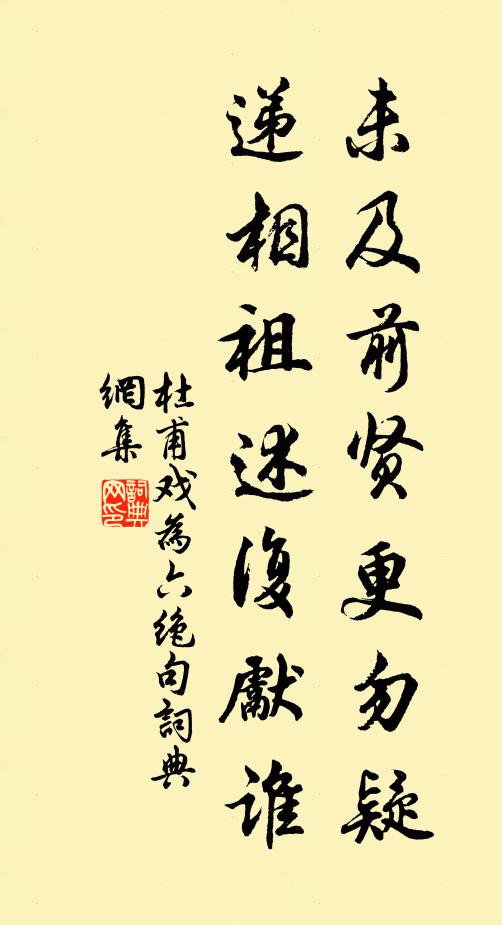 未及前贤更勿疑
递相祖述復獻谁
杜甫戏為六绝句詞典
網集
詞典
网印